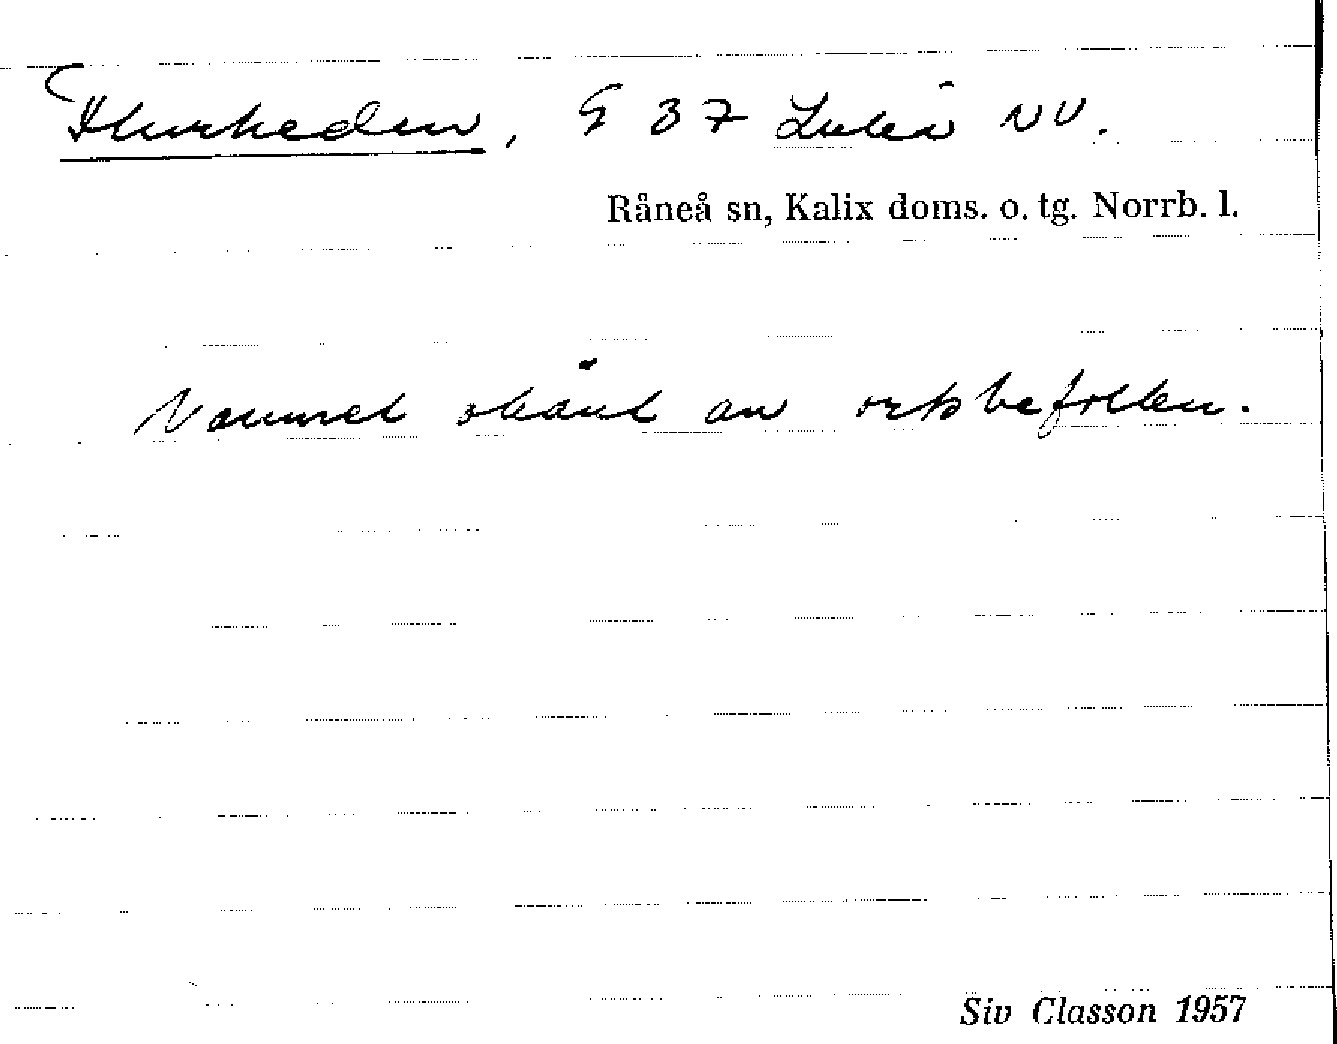 Furheden, G 37 Luleå NV.
Råneå sn, Kalix doms. o. tg. Norrb. l.
Namnet okänt av ortsbefolkn.
Siv Classon 1957